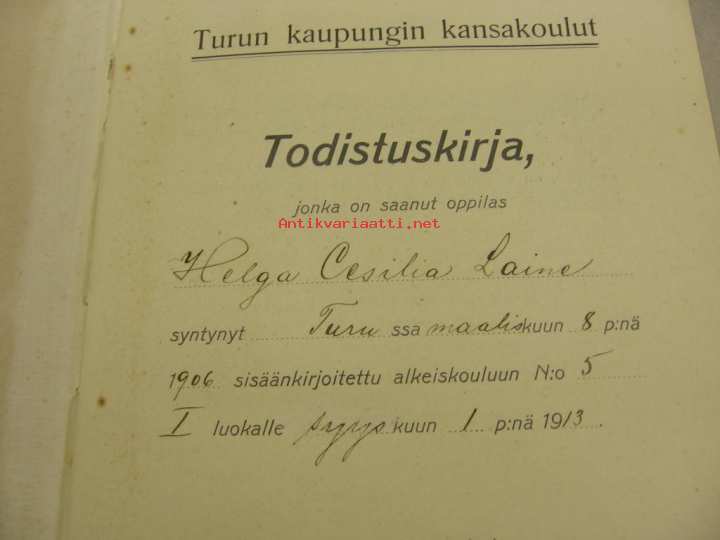 Turun kaupungin kansakoulut
Todistuskirja,
jonka on saanut oppilas
Antikvariaatti.net
Helga Cesilia Laine
syntynyt Turussa maaliskuun 8 p:nä
1906 sisäänkirjoitettu alkeiskouluun N:o 5
I luokalle syyskuun 1 p:nä 1913.